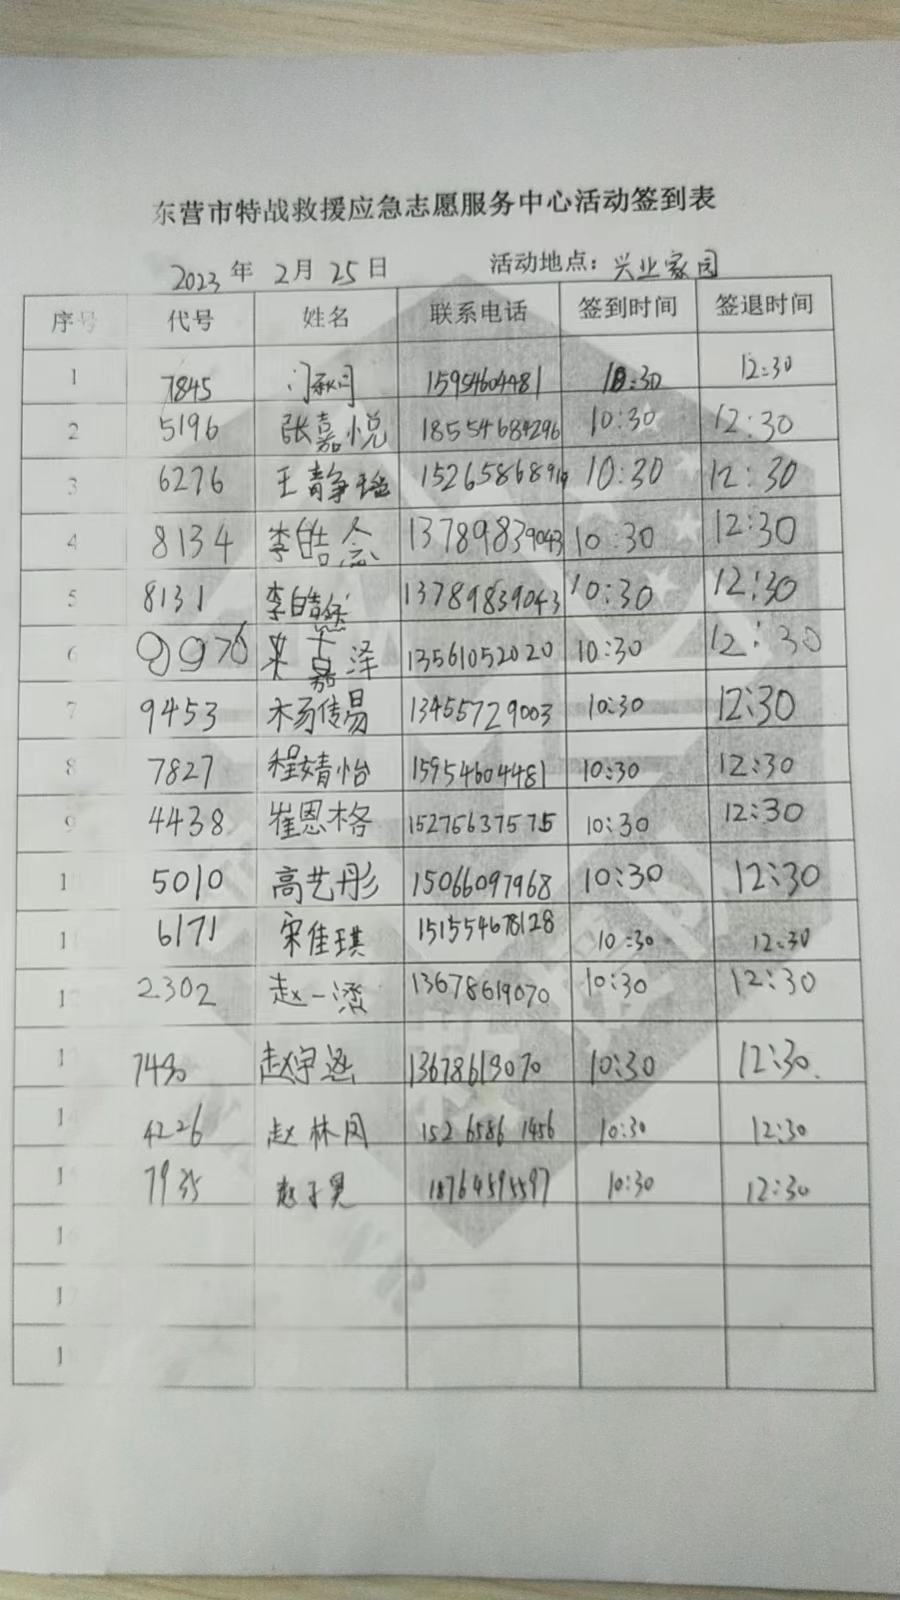 东营市特战救援应急志愿服务中心活动签到表
2023年 2月25日 活动地点：兴业家园
序号 代号 姓名 联系电话 签到时间 签退时间
1 7845 15954604481 10:30 12:30
2 5196 张嘉悦 18554684296 10:30 12:30
3 6276 王静 15265868919 10:30 12:30
4 8134 李皓念 13789839043 10:30 12:30
5 8131 李皓 13789839043 10:30 12:30
6 9976 嘉泽 13561052020 10:30 12:30
7 9453 杨传易 13455729003 10:30 12:30
8 7827 程婧怡 15954604481 10:30 12:30
9 4438 崔恩格 15276637575 10:30 12:30
1 5010 高艺彤 15066097968 10:30 12:30
1 6171 宋佳琪 151554678128 10:30 12:30
1 2302 赵一济 13678619070 10:30 12:30
1 7490 赵宇涵 13678619070 10:30 12:30
14 4226 赵林风 15265861456 10:30 12:30
1 7935 赵子昊 18764595597 10:30 12:30
16
1
1